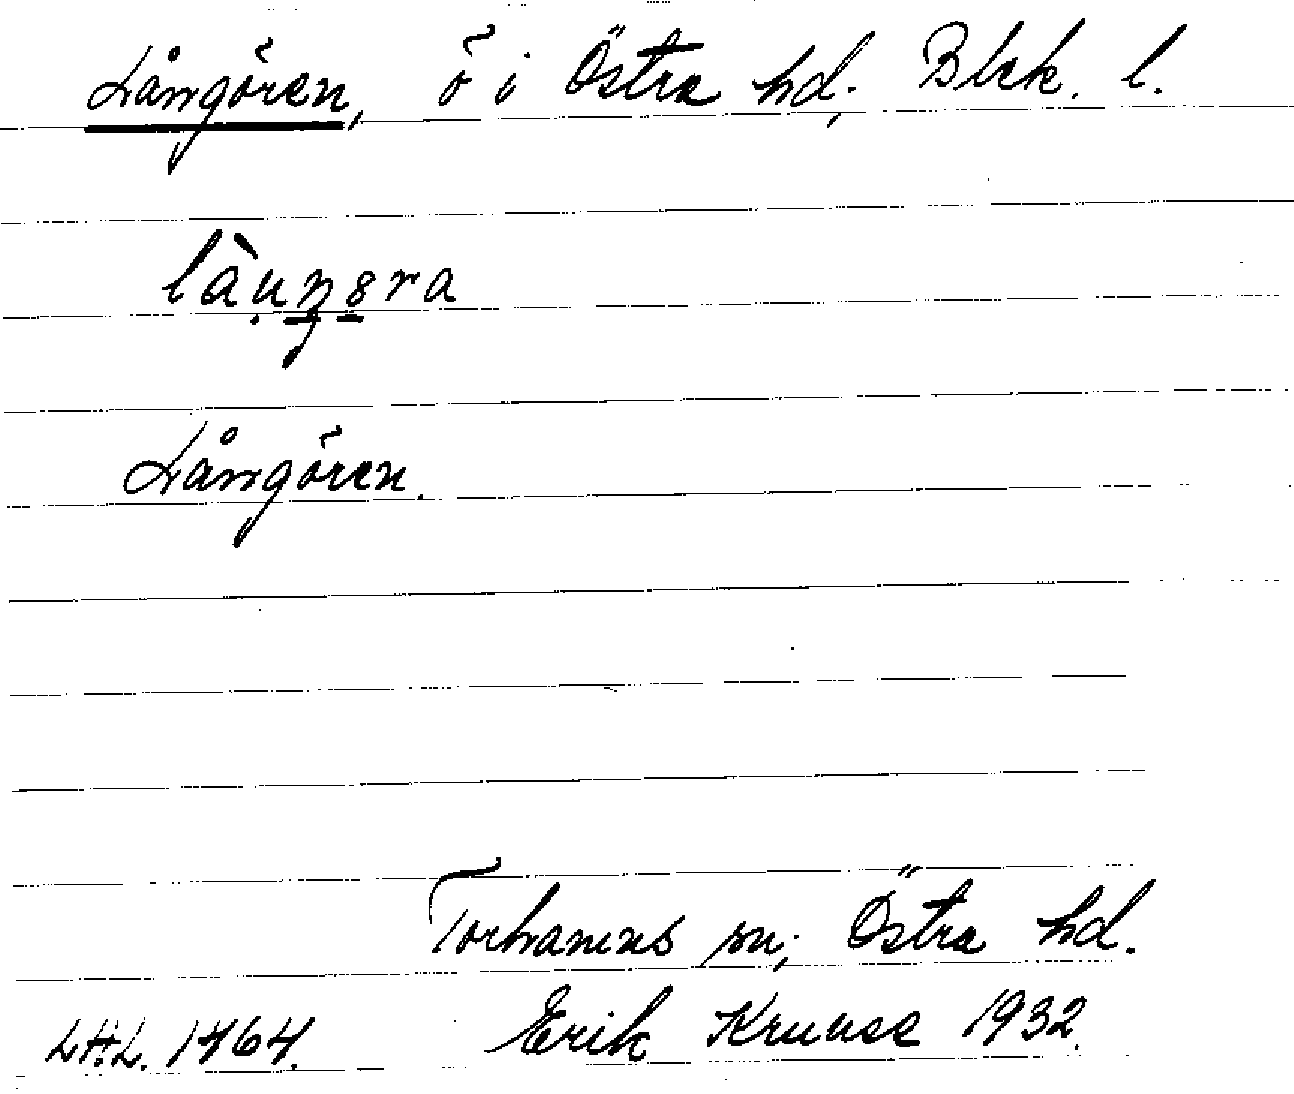 Långören, ö i Östra hd, Blek. l.
Långören.
Torhamns sn; Östra hd.
LAL. 1464. Erik Kruuse 1932.